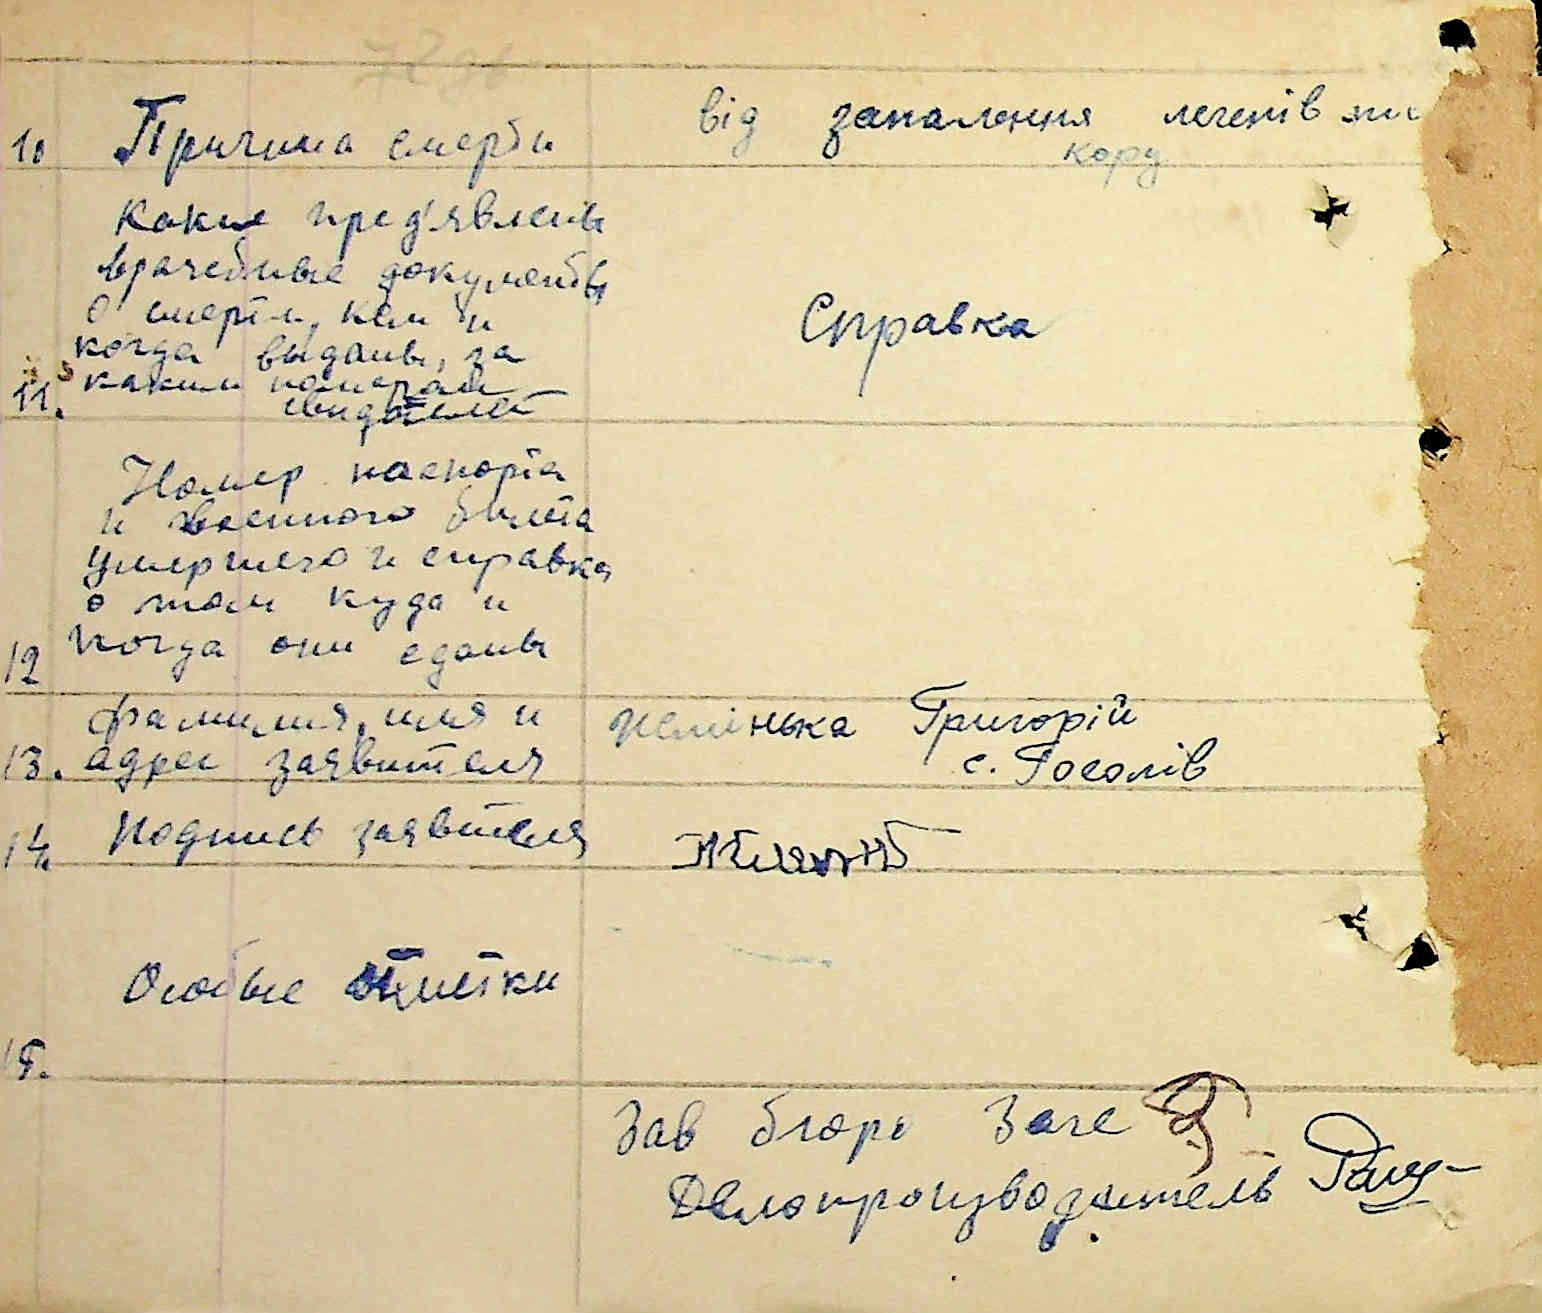 10 Причина смерти
від запалення легенів
кору
Какие пред'явлены
врачебные документы
о смерти, кем и
когда выданы, за
каким номером
11.
Справка
Номер паспорта
и военного билета
умершего и справка
о том куда и
12 когда они сданы
Фамилия, имя и
13. адрес заявителя
Григорій
с. Гоголів
14. Подпись заявителя
Особые отметки
15.
Зав бюро Загс
Делопроизводитель